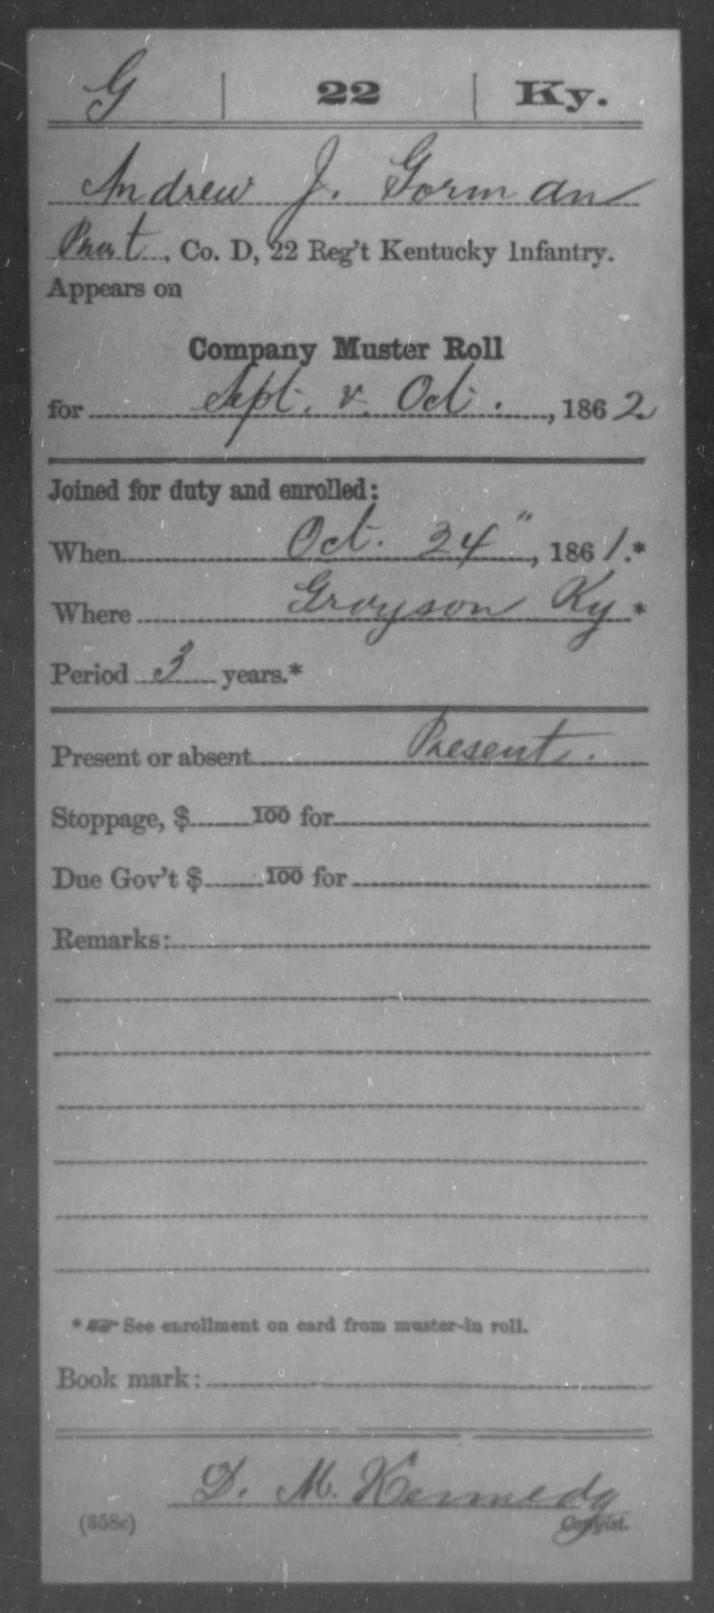 G | 22 | Ky.
Andrew J. Gorman
Privt., Co. D, 22 Reg't Kentucky Infantry.
Appears on
Company Muster Roll
for Sept. & Oct. , 1862
Joined for duty and enrolled:
When Oct. 24", 1861.*
Where Grayson Ky *
Period 3 years.*
Present or absent Present.
Stoppage, $ 100 for
Due Gov't $ 100 for
Remarks:
* ☞ See enrollment on card from muster-in roll.
Book mark:
D. M. Kennedy
(358c) Copyist.